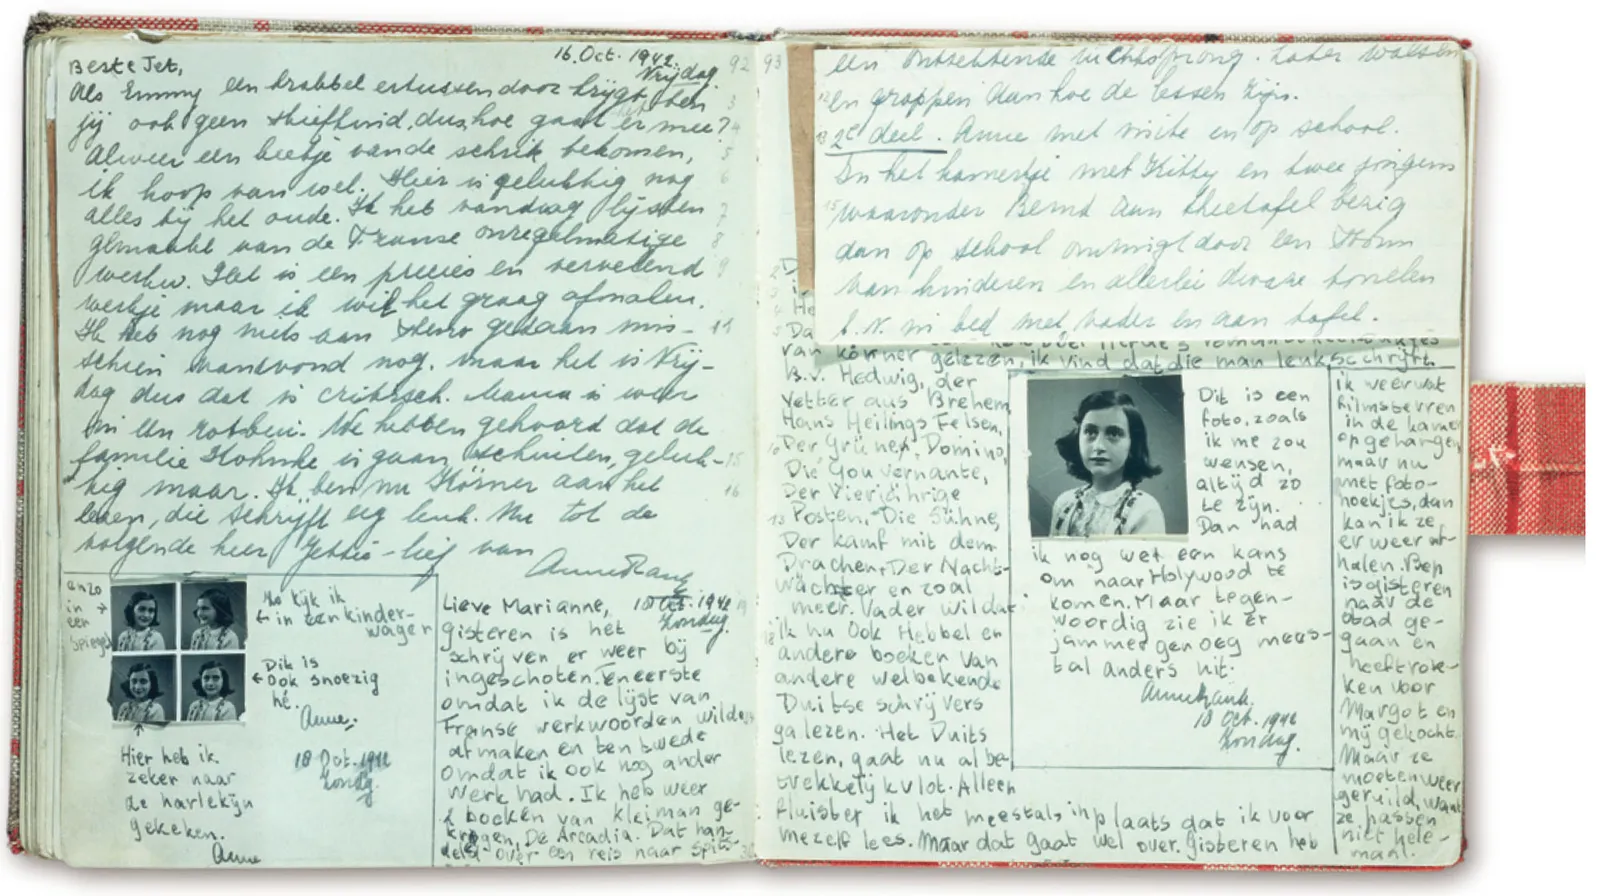 16 Oct. 1942.
Vrijdag.
92
Beste Jet,
Als Emmy een krabbel ertussendoor krijgt ben
jij ook geen stiefkind, dus hoe gaat het er mee?
Alweer een beetje van de schrik bekomen,
ik hoop van wel. Hier is gelukkig nog
alles bij het oude. Ik heb vandaag lijsten
gemaakt van de Franse onregelmatige
werkw. Het is een precies en vervelend
werkje maar ik wil het graag afmaken.
Ik heb nog niets aan steno gedaan mis-
schien vanavond nog, maar het is Vrij-
dag dus dat is critisch. Mama is weer
We hebben gehoord dat de
familie is gaan schuilen, geluk-
kig maar. Ik ben nu Körner aan het
lezen, die schrijft erg leuk. Nu tot de
volgende keer Jettie-lief van
Anne Frank
anzo
in
een
spiegel
Nu kijk ik
in een kinder-
wagen
Dit is
ook snoezig
hé.
Anne.
18 Oct. 1942
Zondag.
Hier heb ik
zeker naar
de harlekijn
gekeken.
Anne
Lieve Marianne,
18 Oct. 1942
Zondag.
Gisteren is het
schrijven er weer bij
ingeschoten. Teneerste
omdat ik de lijst van
Franse werkwoorden wilde
afmaken en ten twede
omdat ik ook nog ander
werk had. Ik heb weer
2 boeken van Kleiman ge-
kregen, De Arcadia. Dat han-
delt over een reis naar Spits-
93
een ontzettende luchtsprong. Later walsen
en grappen dan hoe de lessen zijn.
2e deel. Anne met visite en op school.
In het kamertje met Kitty en twee jongens
waaronder Bernd aan theetafel bezig
dan op school omringt door een stoom
van kinderen en allerlei dwaze tonelen
b.v. in bed met vader en aan tafel.
van Körner gelezen, ik vind dat die man leuk schrijft.
B.v. Hedwig, der
Vetter aus Brehem,
Hans Heilings Felsen,
Der Grünen Domino,
Die Gouvernante,
Der Vierjährige
Posten, Die Sühne,
Der Kamf mit dem
Drachen, Der Nacht-
wächter en zoal
meer. Vader wil dat
ik nu ook Hebbel en
andere boeken van
andere welbekende
Duitse schrijvers
ga lezen. Het Duits
lezen, gaat nu al be-
trekkelijk vlot. Alleen
fluister ik het meestal inplaats dat ik voor
mezelf lees. Maar dat gaat wel over. Gisteren heb
Dit is een
foto, zoals
ik me zou
wensen,
altijd zo
te zijn.
Dan had
ik nog wel een kans
om naar Holywood te
komen. Maar tegen-
woordig zie ik er
jammer genoeg mees-
tal anders uit.
Anne Frank.
18 Oct. 1942
Zondag.
ik weer wat
filmsterren
in de kamer
opgehangen,
maar nu
met foto-
hoekjes, dan
kan ik ze
er weer af-
halen. Bep
is gisteren
naar de
stad ge-
gaan en
heeft rok-
ken voor
Margot en
mij gekocht.
Maar ze
moeten weer
geruild, want
ze passen
niet hele-
maal.